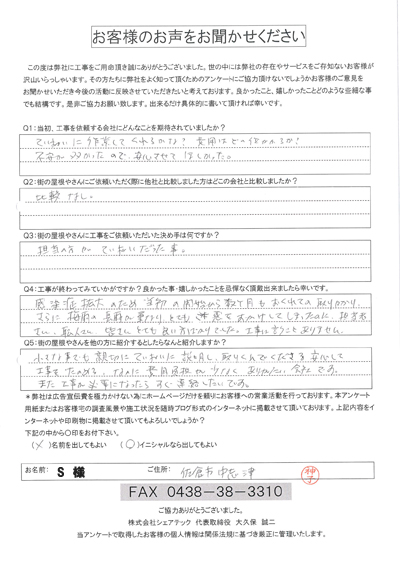 お客様のお声をお聞かせください
この度は弊社に工事をご用命頂き誠にありがとうございました。世の中には弊社の存在やサービスをご存知ないお客様が
沢山いらっしゃいます。その方たちに弊社をよく知って頂くためのアンケートにご協力頂けないでしょうかお客様のご意見を
お聞かせいただき今後の活動に反映させていただきたいと考えております。良かったこと、嬉しかったことどのような些細な事
でも結構です。是非ご協力お願い致します。出来るだけ具体的に書いて頂ければ幸いです。
Q1:当初、工事を依頼する会社にどんなことを期待されていましたか?
ていねいに作業してくれるかな? 費用はどの位かかるか?
不安が あったので、安心させて ほしかった。
Q2:街の屋根やさんにご依頼いただく際に他社と比較しました方はどこの会社と比較しましたか?
比較なし。
Q3:街の屋根やさんに工事をご依頼いただいた決め手は何ですか?
担当の方が ていねいだった事。
Q4:工事が終わってみていかがですか?良かった事・嬉しかったことを忌憚なく頂戴出来ましたら幸いです。
感染症拡大のため 当初の開始から数ヶ月もおくれての取りかかり、
さらに 梅雨の長雨が重なり とても
皆さん とても 良い方ばかりでした。工事は言うことありません。
Q5:街の屋根やさんを他の方に紹介するとしたらなんと紹介しますか?
小さな事でも 親切に ていねいに 説明し、取りくんでくださる 安心して
工事をたのめる、なのに 費用負担が少なく ありがたい 会社です。
また 工事が必要になったら すぐ連絡したいです。
*弊社は広告宣伝費を極力かけない為にホームページだけを頼りにお客様への営業活動を行っております。本アンケート
用紙またはお客様宅の調査風景や施工状況を随時ブログ形式のインターネットに掲載させて頂いております。上記内容をイ
ンターネットや印刷物に掲載させて頂いてもよろしいでしょうか?
下記の中から〇印をお付下さい。
(✓)名前を出してもよい (〇)イニシャルなら出してもよい
お名前: S 様 ご住所: 佐倉市中志津
FAX 0438-38-3310
ご協力ありがとうございました。
株式会社シェアテック 代表取締役 大久保 誠二
当アンケートで取得したお客様の個人情報は関係法規に基づき厳正に管理いたします。